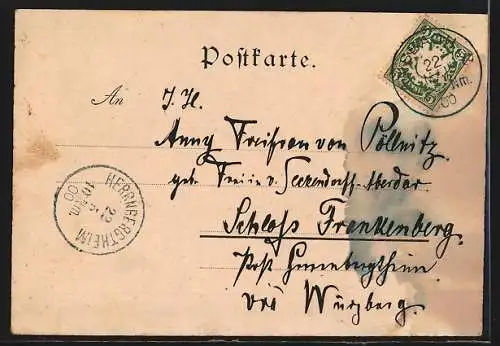 Postkarte.
An I. H.
Anny Freifrau von Pöllnitz
geb. Freiin v. Seckendorff-Aberdar
Schloss Frankenberg.
Post Herrnbergtheim
bei Würzburg.
HERRNBERGTHEIM
22
10
Vm.
00
22
Vm.
00